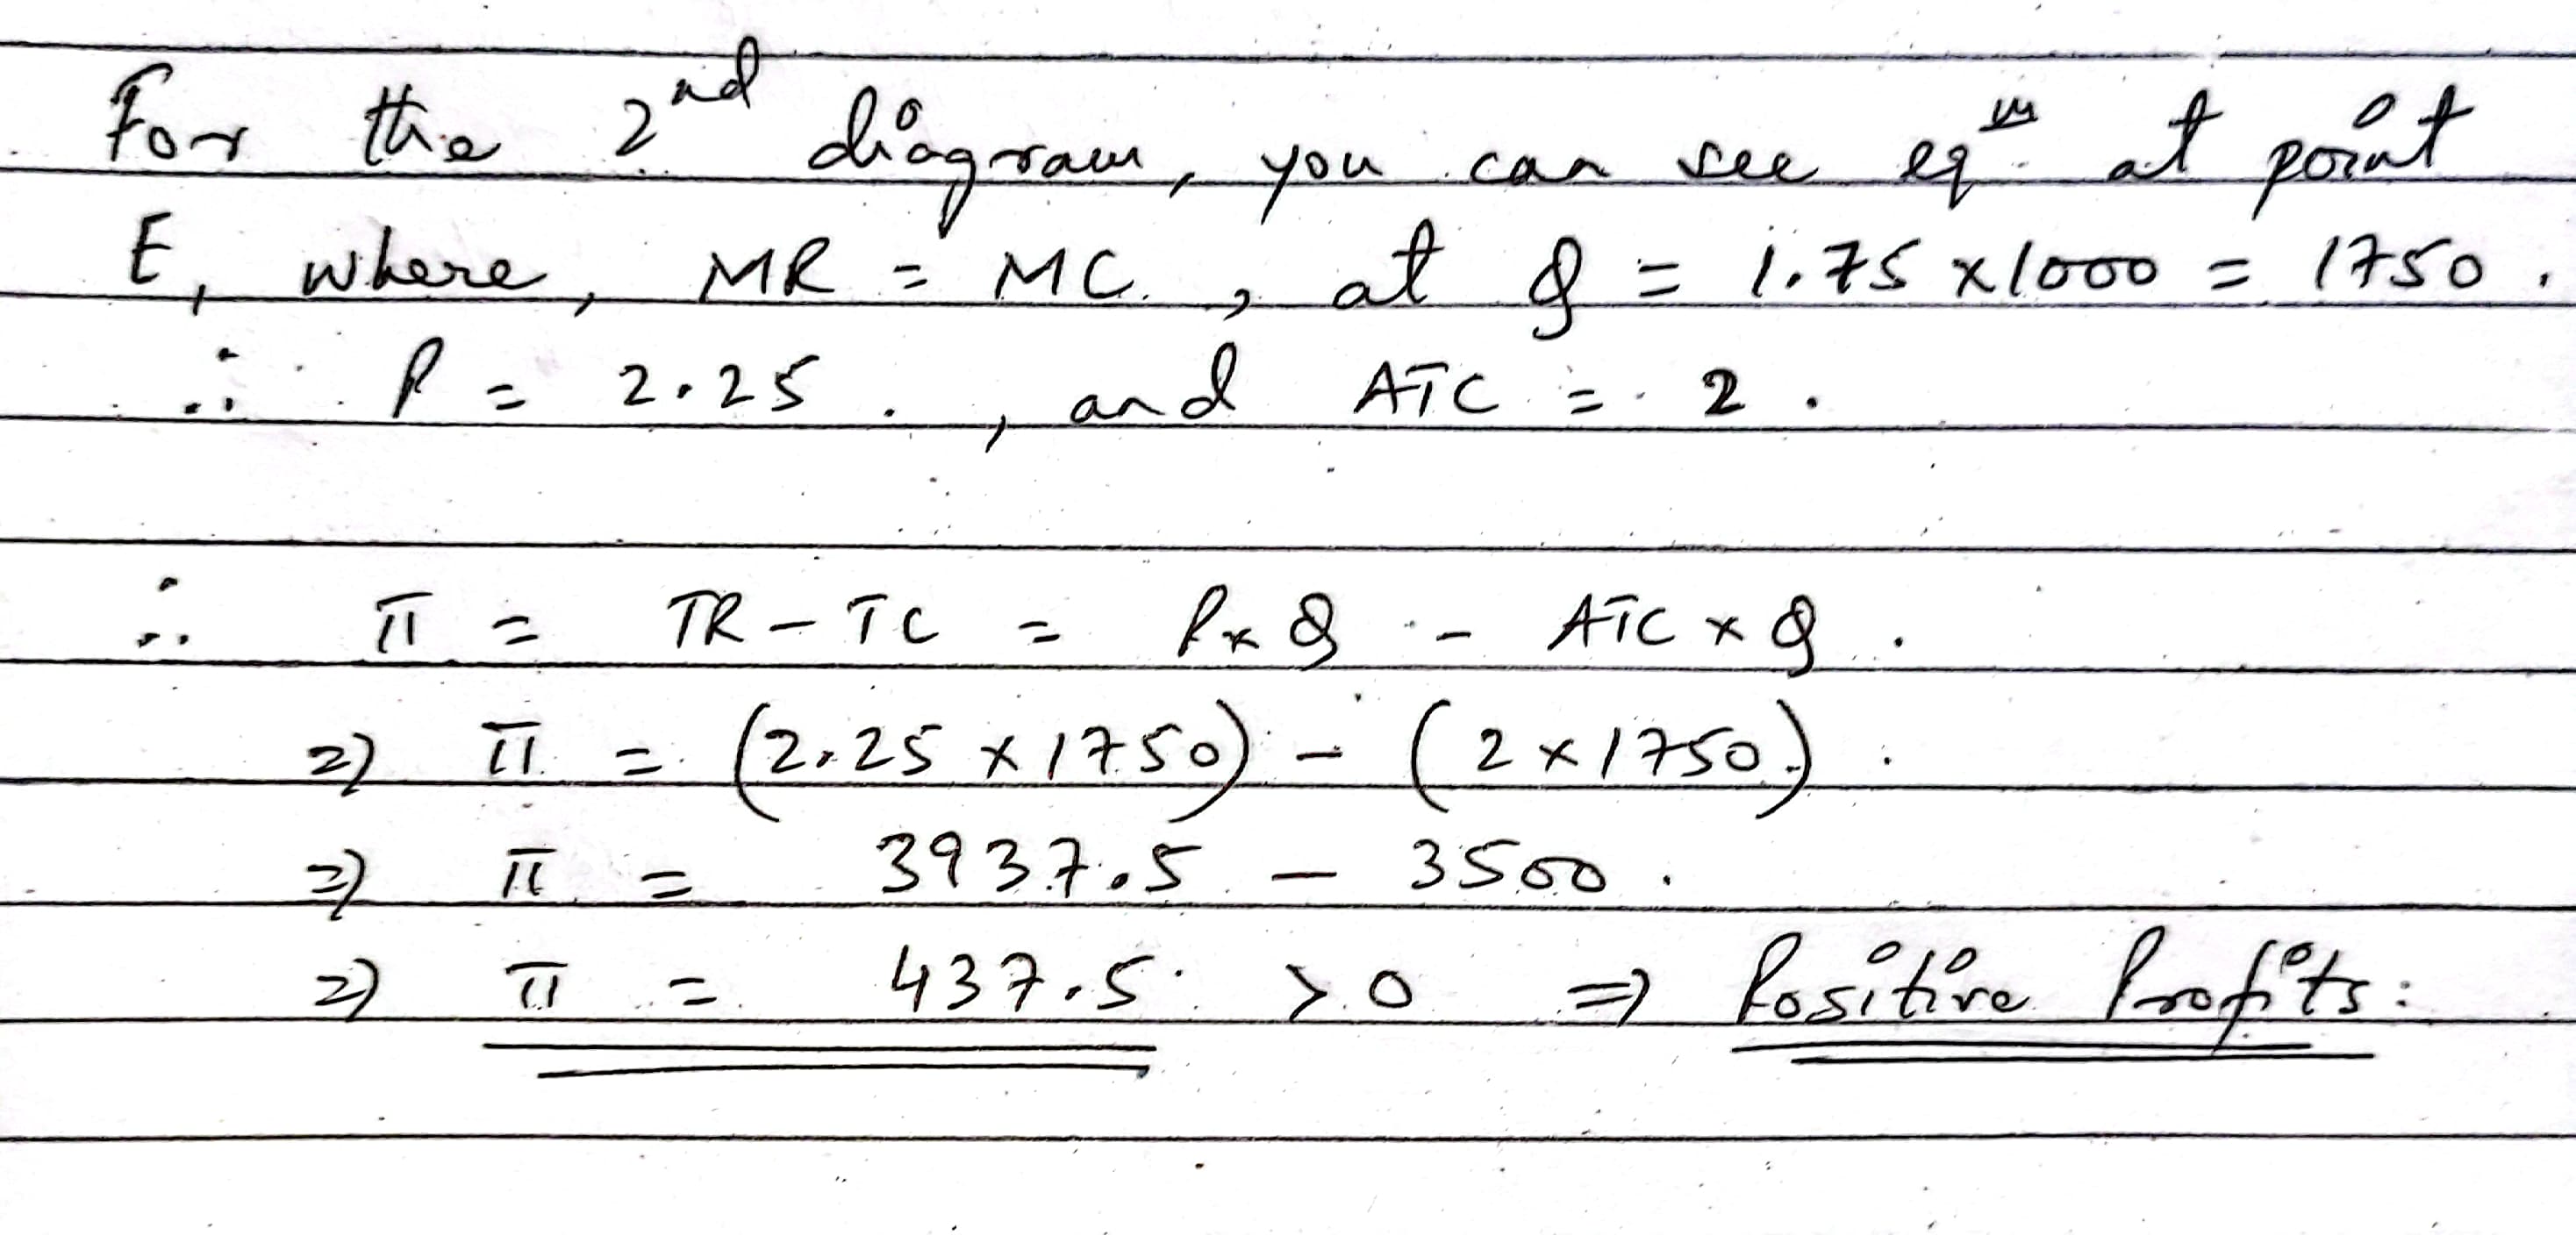 For the 2nd diagram, you can see eqm at point
E, where, MR = MC, at Q = 1.75 x 1000 = 1750.
∴ P = 2.25, and ATC = 2.
∴ π = TR - TC = P x Q - ATC x Q.
⇒ π = (2.25 x 1750) - (2 x 1750).
⇒ π = 3937.5 - 3500.
⇒ π = 437.5 > 0 ⇒ Positive Profits.